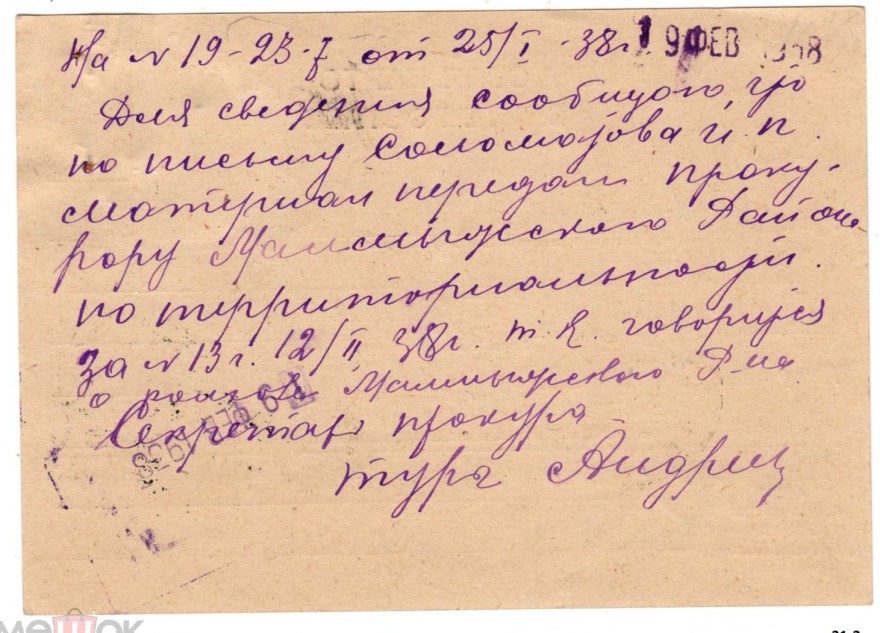 На № 19-23-7 от 25/I-38г. 19 ФЕВ 1938
Для сведения сообщаю, что
по письму Соломатова И. П.
материал передан проку-
рору Малмыжского района
по территориальности.
за № 13 г. 12/II 38г. т.к. говорится
о Малмыжского р-на
Секретарь прокура
тура Андриц
9 ФЕВ 1938
мешок